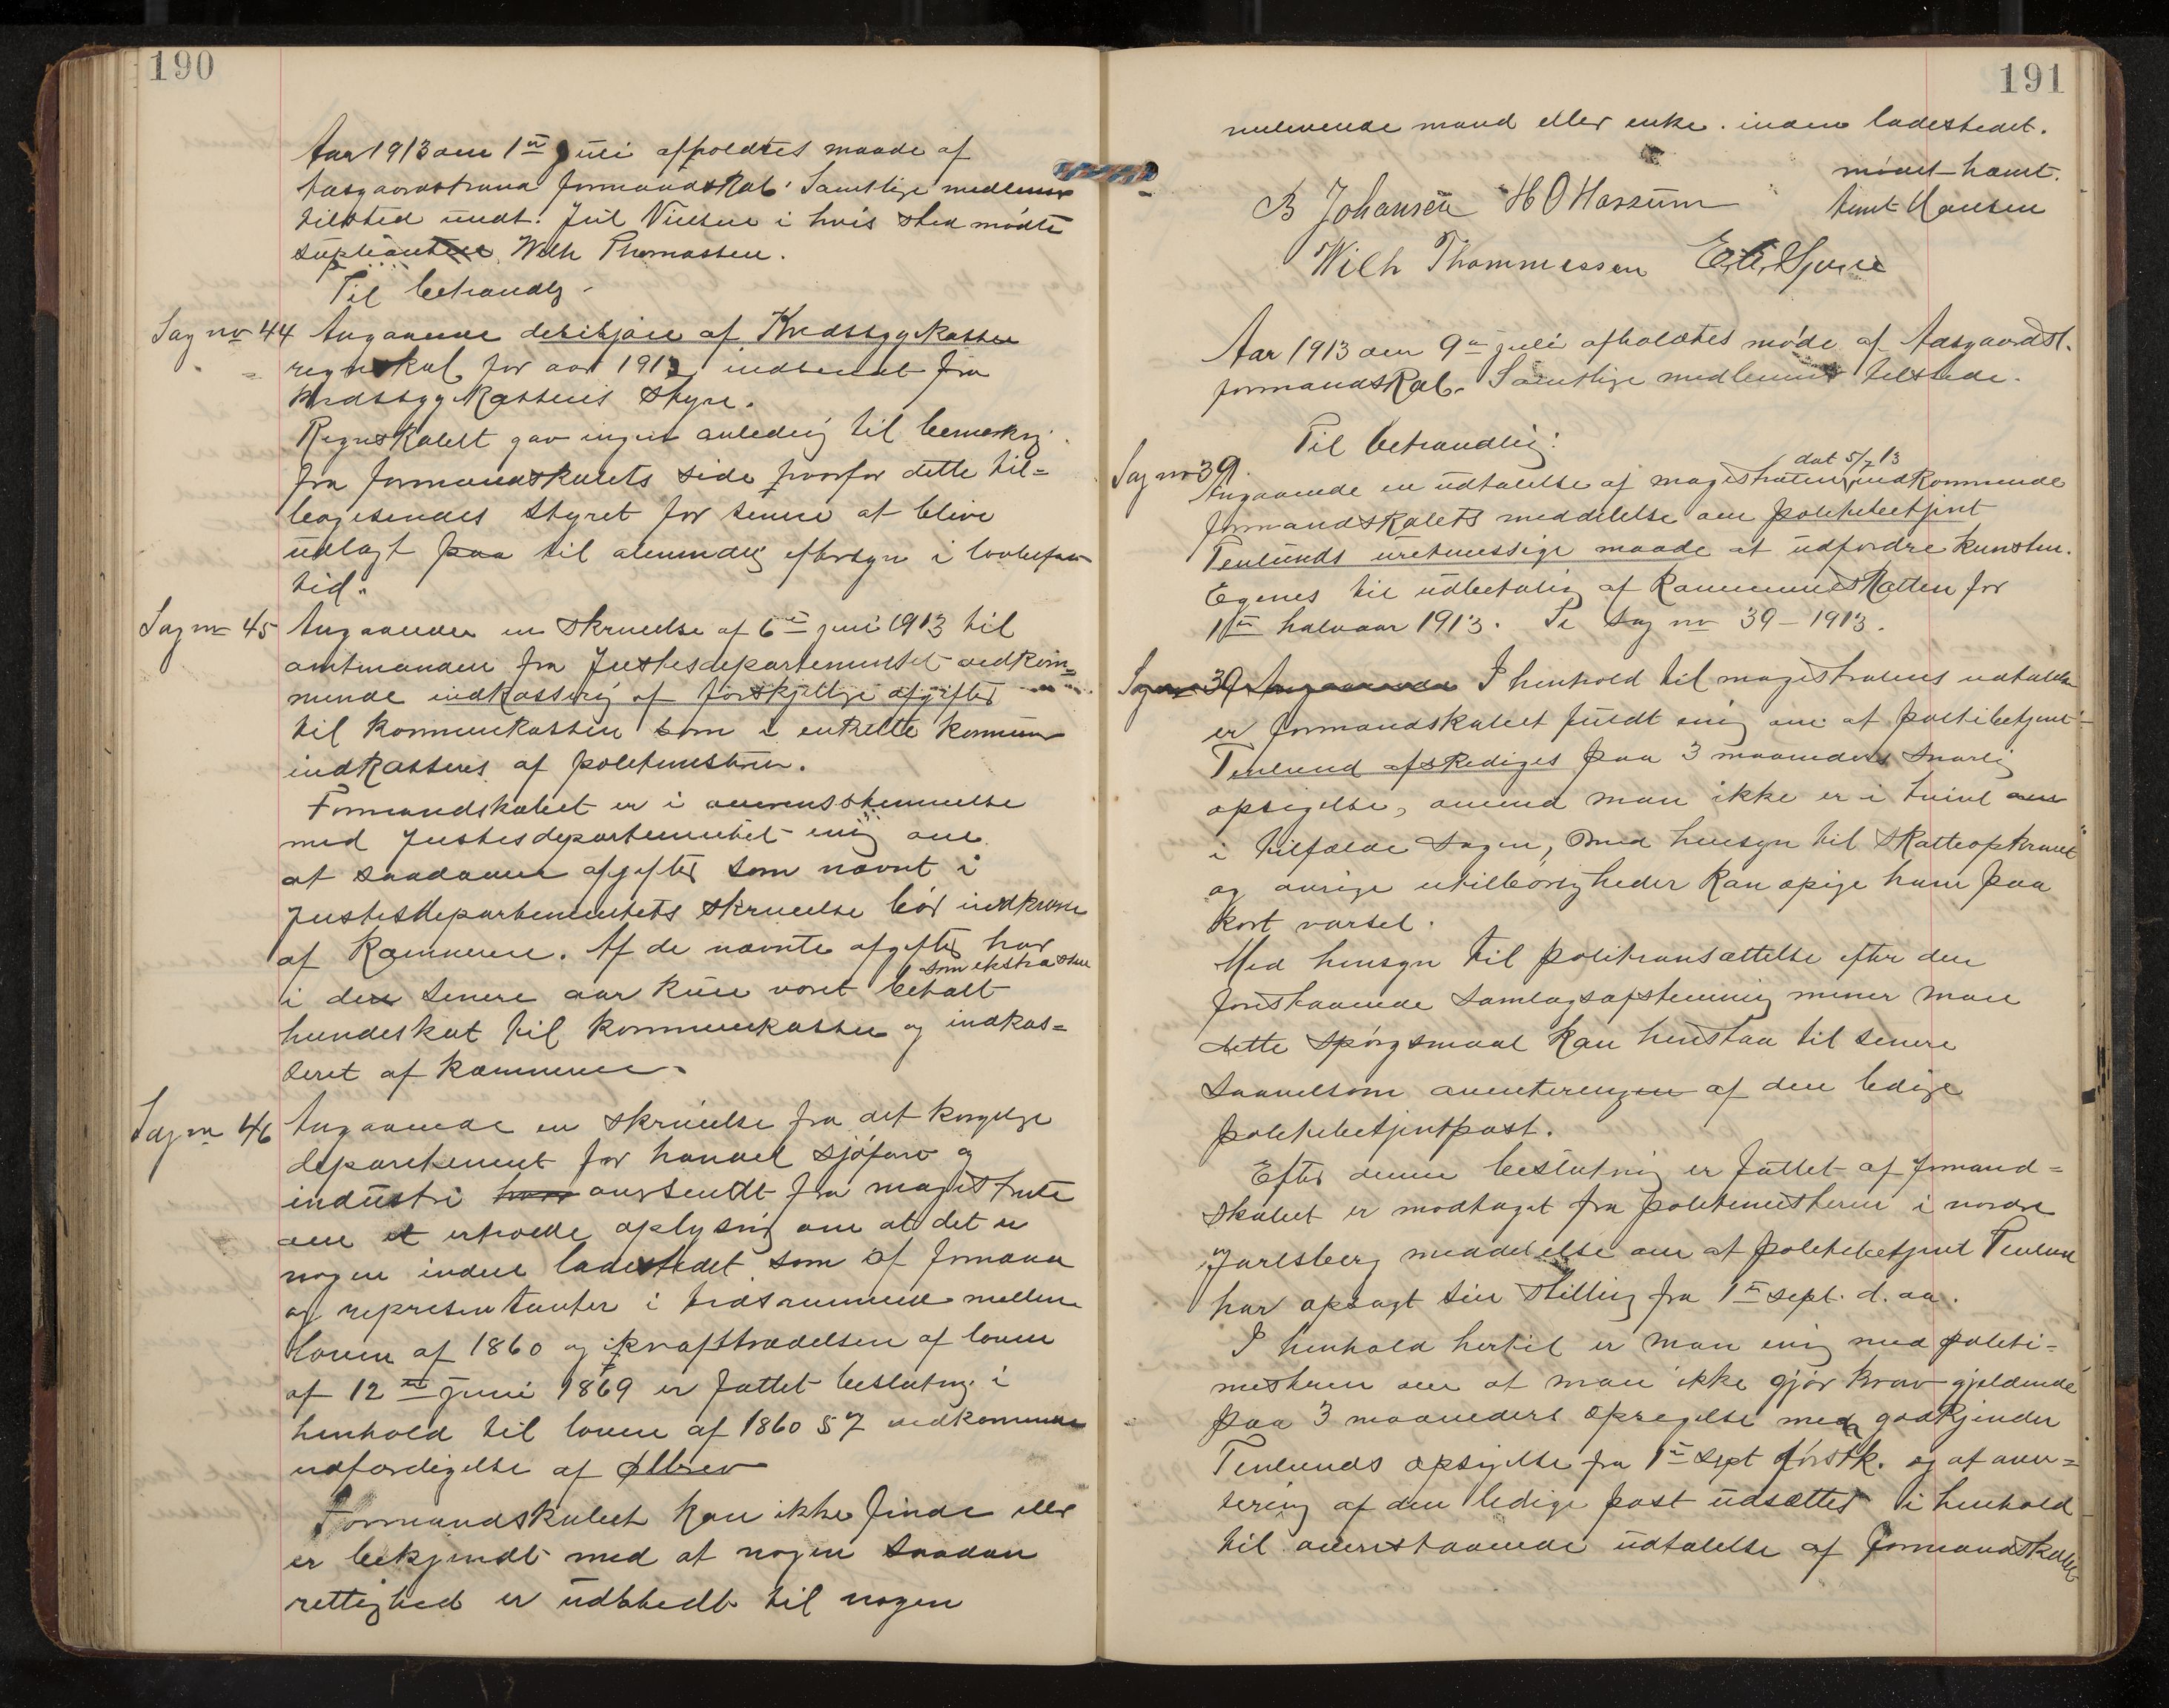 190
Aar 1913 den 1ste Juli afholdtes møde af
Aasgaardstrand formandskab. Samtlige medlemer
tilsted undt. Jul Nielsen i hvis sted mødte
supleanten Wilh Thomassen.
Til behandlg.
Sag no 44 Angaaende desisjon af Kredssygekassen
regnskab for aar 1912 indsendt fra
Kredssygekassens styre.
Regnskabet gav ingen anledning til bemerkng
fra formandskabets side hvorfor dette til=
bagesendes styret for senere at blive
udlagt paa til almindelig eftersyn i lovbefalt
tid.
Sag no 45 Angaaende en skrivelse af 6te juni 1913 til
amtmanden fra Justisdepartementet vedkom=
mende indkassering af forskjellige afgifter
til kommunekassen som i enkelte kommuner
indkasseres af politimesteren.
Formandskabet er i overensstemmelse
med Justisdepartementet enig om
at saadanne afgifter som nævnt i
Justisdepartementets skrivelse bør indkræves
af Kæmneren. Af de nævnte afgifter har
som ekstra skat
i den senere aar kun været betalt
hundeskat til kommunekassen og indkas=
seret af kæmneren.
Sag no 46 Angaaende en skrivelse fra det kongelige
departement for handel sjøfart og
industri oversendt fra magistraten
om at erholde oplysning om at det er
nogen inden ladestedet som af formænd
og representanter i tidsrummet mellem
loven af 1860 og ikrafttrædelsen af loven
af 12te juni 1869 er fattet beslutng i
henhold til loven af 1860 § 7 vedkommende
udfærdigelse af ølbrev
Formandskabet kan ikke finde eller
er bekjendt med at nogen saadan
rettighed er udstedt til nogen
191
nulevende mand eller enke inden ladestedet.
mødet hævt.
B Johansen H O Hassum Amt Hansen
Wilh Thommessen
Aar 1913 den 9de juli afholdtes møde af Aasgaardst.
formandskab. Samtlige medlemmer tilstede.
Til behandling:
Sag no 39.
dat 5/7 13
Angaaende en udtalelse af magistraten vedkommende
formandskabets meddelelse om politibetjent
Tenlunds uretmessige maade at udfordre kunstm.
Egenes til udbetaling af Kommuneskatten for
1ste halvaar 1913. Se Sag no 39 – 1913.
Sag no 39 Angaaende I henhold til magistratens udtalelse
er formandskabet fuldt enig om at politibetjent
Tenlund afskediges paa 3 maaneders snarlig
opsigelse, omend man ikke er i tvivl om
i tilfælde sagen, med hensyn til skatteopkravet
og øvrige utilbørligheder kan opsige ham paa
kort varsel.
Med hensyn til politiansættelse efter den
forestaaende samlagsafstemning mener man
dette spørgsmaal kan henstaa til senere
saavelsom averteringen af den ledige
politibetjentpost.
Efter denne beslutning er fattet af formand=
skabet er modtaget fra politimesteren i nordre
Jarlsberg meddelelse om at politibetjent Tenlund
har opsagt sin stilling fra 1ste sept. d. aa.
I henhold hertil er man enig med politi=
mesteren om at man ikke gjør krav gjeldende
paa 3 maaneders opsigelse men godkjender
Tenlunds opsigelse fra 1ste sept førstk. og at aver=
tering af den ledige post udsættes i henhold
til ovenstaaende udtalelse af formandskabet